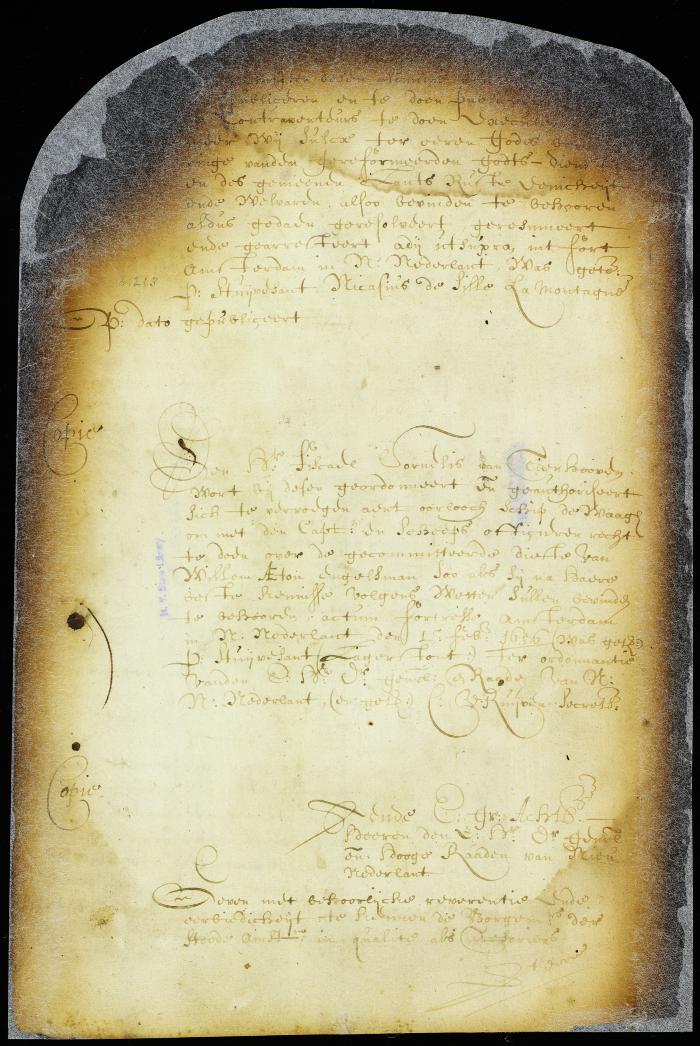 publiceren en te doen
Contraventeurs te doen
Wij sulcx ter eeren Godes
vanden gereformeerden godts-dien
en des gemeenen Lants Ruste Eenicheyt
ende Welvaren, alsoo bevinden te behooren
aldus gedaen geresolveert geresumeert
ende gearresteert adij utsupra, int fort
Amsterdam in N: Nederlant, Was get:
P: Stuijvesant, Nicasius de Sille La Montagne
dato gepubliceert
Copie
Den Hr: fiscael Cornelis van Tienhooven
Wort bij desen geordonneert en geauthoriseert
sich te vervoegen aent oorloch schip de Waagh
om met den Capt: en scheeps officieren recht
te doen over de gecommitteerde diefte van
Willem Engelsman soo als sij na haere
beste kennisse volgens Wetten sullen bevinden
te behooren, actum fortresse Amsterdam
in N: Nederlant, den feb: 1656 (Was get:)
P: Stuijvesant (Lager stont:) Ter ordonnantie
vanden E. Hr. Dr. genrl: en Raden van N:
N: Nederlant, (en get:) C. V. Ruijven secrets:
Copie
Aende E: gr: Achtb:
Heeren den E: Hr. Dr genrl
en hooge Raaden van Nieu
Nederlant
Geven met behoorlijcke reverentie ende
eerbiedicheijt te kennen de Borgem: der
stede Amst: in qualite als Tresoriers